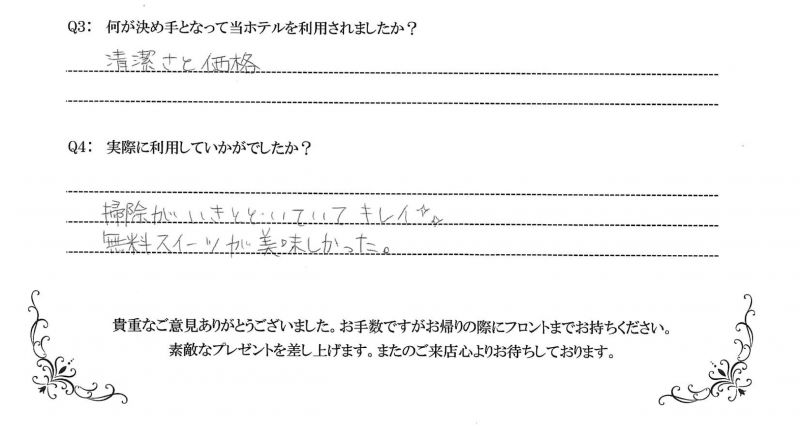 Q3： 何が決め手となって当ホテルを利用されましたか？
清潔さと価格
Q4： 実際に利用していかがでしたか？
掃除がいきとどいていてキレイ✨
無料スイーツが美味しかった。
貴重なご意見ありがとうございました。お手数ですがお帰りの際にフロントまでお持ちください。
素敵なプレゼントを差し上げます。またのご来店心よりお待ちしております。